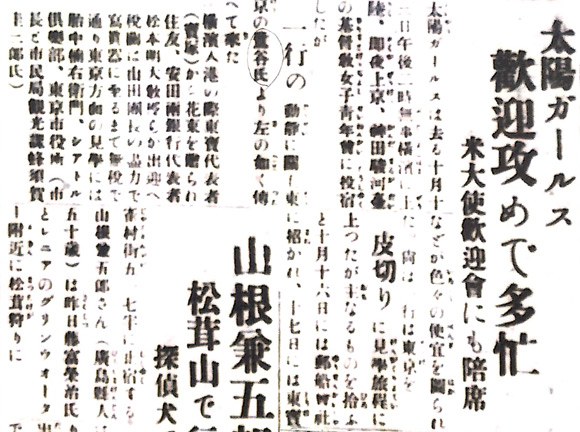 太陽ガールス
歡迎攻めで多忙
米大使歡迎會にも陪席
太陽ガールスは去る十月十
二日午後二時無事横濱に上
陸、即夜上京、神田駿河臺
の基督敎女子靑年會に投宿
したが
一行の動靜に關し東
京の豊谷氏より左の如く傳
へて來た
橫濱入港の際東寶代表者
(寶塚)から花束を贈られ
住友、安田兩銀行代表者
松本明大敎授らが出迎へ
稅關は山田團長の盡力で
寫眞器に至るまで無稅で
通り東京方面の見學には
胎中楠右衛門、シアトル
俱樂部、東京市役所(市
長と市民局觀光課蜂須賀
圭二郎氏)
などが色々の便宜を圖られ
た、尚ほ一行は東京を
皮切りに見學旅程に
上つたが主なるものを拾ふ
と十月十六日には郵船會社
に招かれ、十七日には東寶
山根兼五
松茸山で
探偵犬
街五、七半に止宿する
山根兼五郎さん(廣島縣人
五十歳)は昨日藤富榮治氏
とレニアのグリンウオータ
ー附近に松茸狩りに